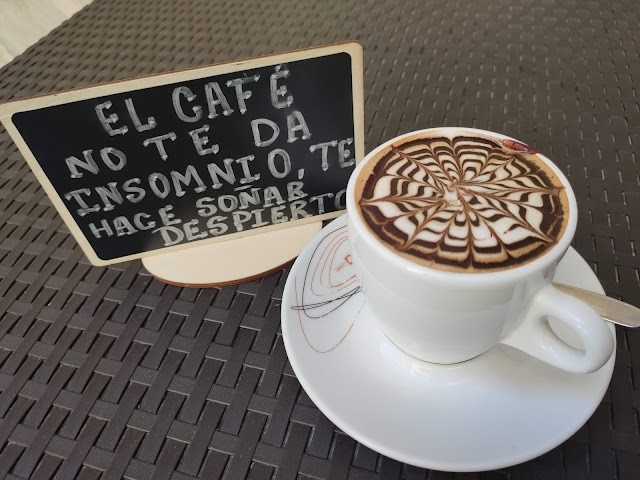 EL CAFÉ
NO TE DA
INSOMNIO, TE
HACE SOÑAR
DESPIERTO